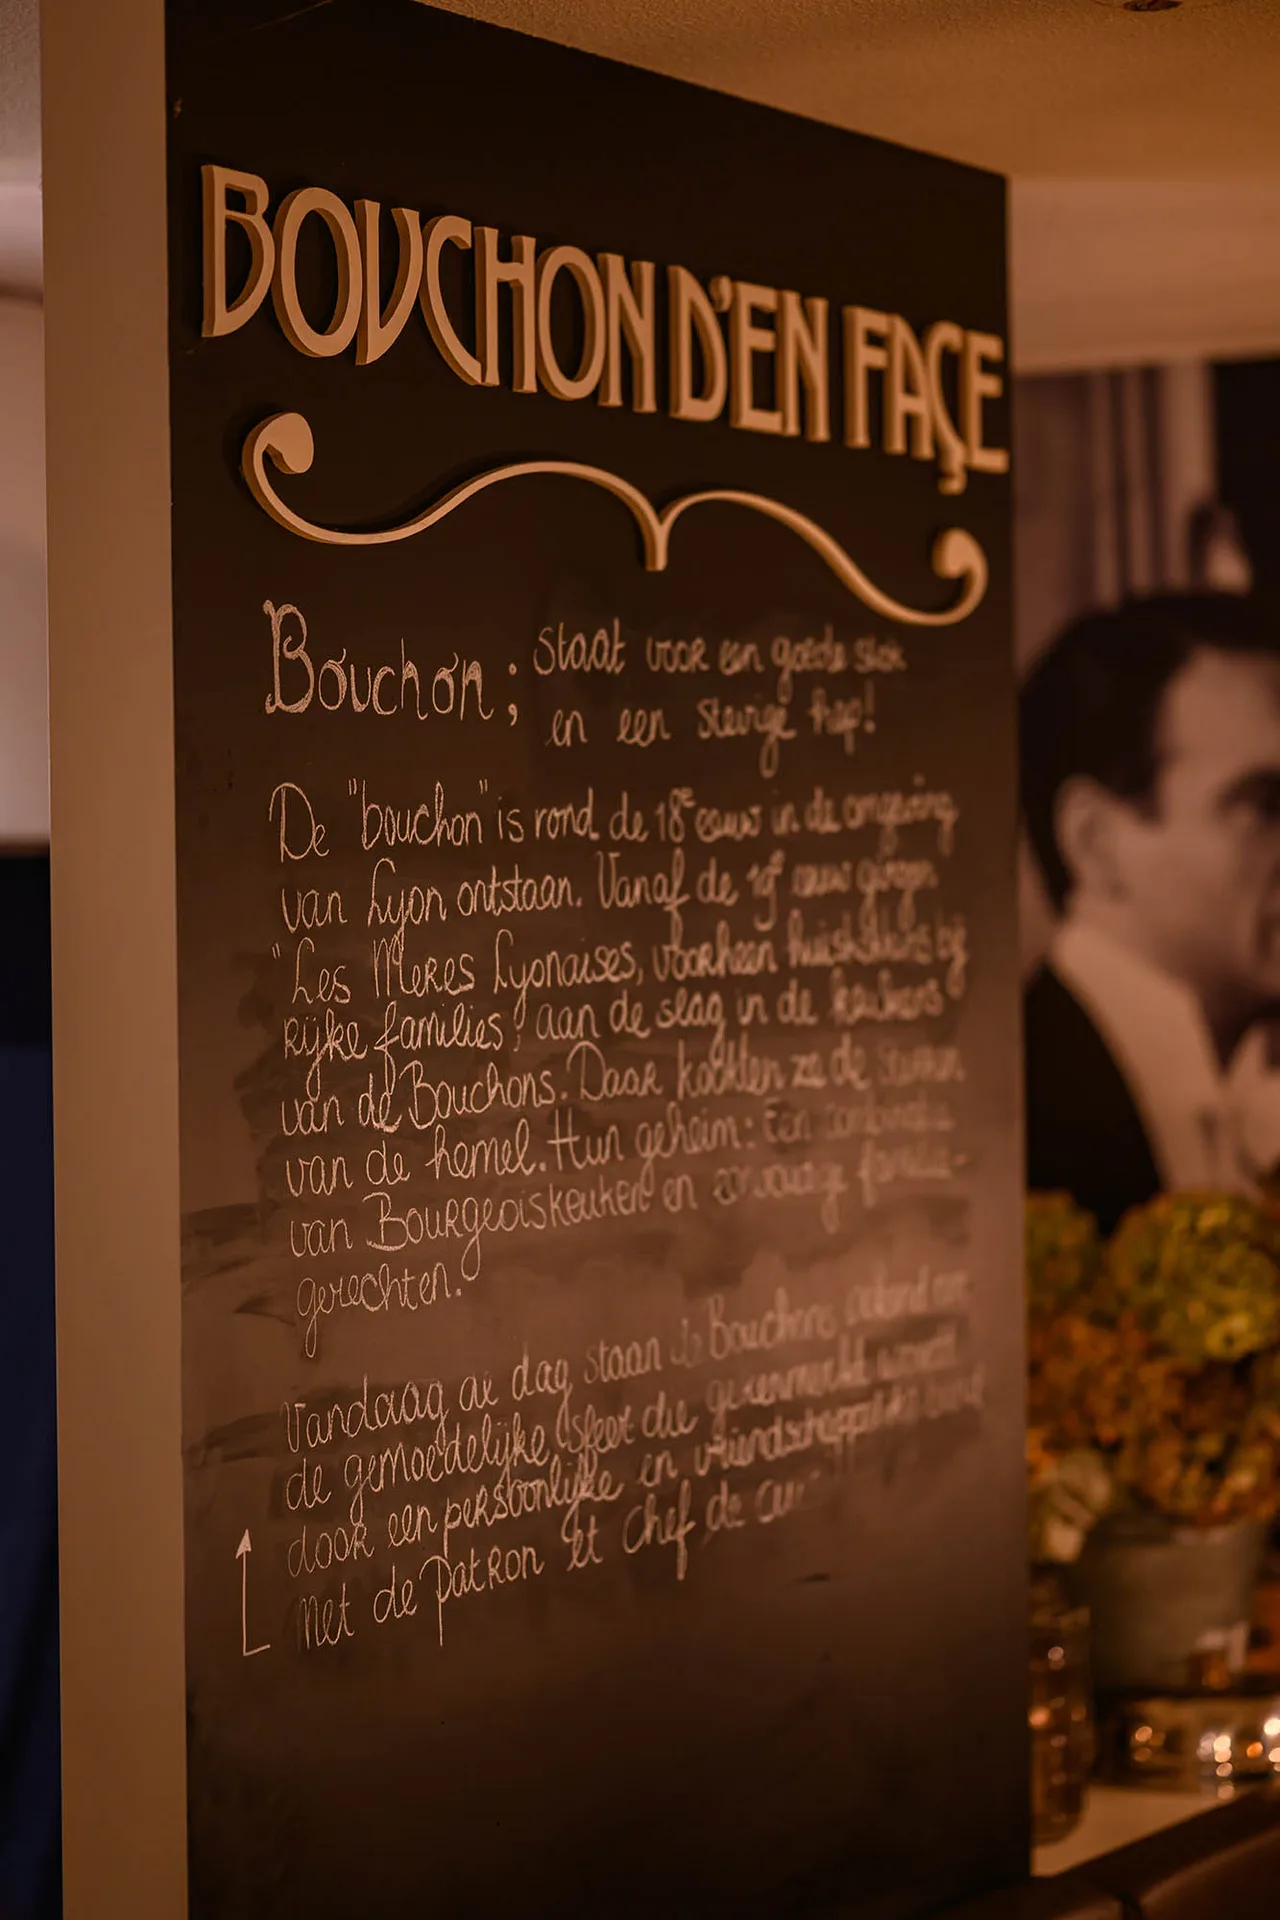 BOUCHON D'EN FAÇE
Bouchon; staat voor een goede slok
en een stevige hap!
De "bouchon" is rond de 18e eeuw in de omgeving
van Lyon ontstaan. Vanaf de 19e eeuw gingen
"Les Meres Lyonaises, voorheen huiskokkins bij
rijke families, aan de slag in de keukens
van de Bouchons. Daar kookten ze de sterren
van de hemel. Hun geheim: Een combinatie
van Bourgeoiskeuken en eenvoudige familie-
gerechten.
Vandaag de dag staan de Bouchons bekend om
de gemoedelijke sfeer die gekenmerkt wordt
door een persoonlijke en vriendschappelijke band
met de patron et chef de cui